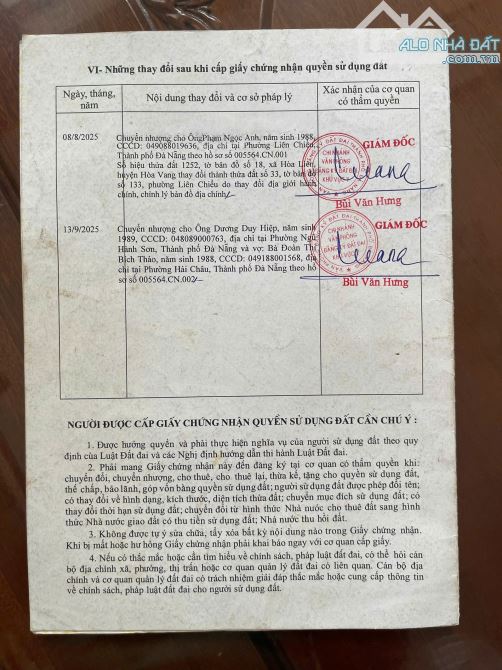 ALO NHÀ ĐẤT
.com.vn
VI- Những thay đổi sau khi cấp giấy chứng nhận quyền sử dụng đất
Ngày, tháng,
năm
Nội dung thay đổi và cơ sở pháp lý
Xác nhận của cơ quan
có thẩm quyền
08/8/2025
Chuyển nhượng cho ÔngPhạm Ngọc Anh, năm sinh 1988,
CCCD: 049088019636, địa chỉ tại Phường Liên Chiểu,
Thành phố Đà Nẵng theo hồ sơ số 005564.CN.001
Số hiệu thửa đất 1252, tờ bản đồ số 18, xã Hòa Liên,
huyện Hòa Vang thay đổi thành thửa đất số 33, tờ bản đồ
số 133, phường Liên Chiểu do thay đổi địa giới hành
chính, chỉnh lý bản đồ địa chính/-
GIÁM ĐỐC
CHI NHÁNH
VĂN PHÒNG
ĐĂNG KÝ ĐẤT ĐAI
KHU VỰC
Bùi Văn Hưng
13/9/2025
Chuyển nhượng cho Ông Dương Duy Hiệp, năm sinh
1989, CCCD: 048089000763, địa chỉ tại Phường Ngũ
Hành Sơn, Thành phố Đà Nẵng và vợ: Bà Đoàn Thị
Bích Thảo, năm sinh 1988, CCCD: 049188001568, địa
chỉ tại Phường Hải Châu, Thành phố Đà Nẵng theo hồ
sơ số 005564.CN.002/-
GIÁM ĐỐC
CHI NHÁNH
VĂN PHÒNG
ĐĂNG KÝ ĐẤT ĐAI
KHU VỰC
Bùi Văn Hưng
NGƯỜI ĐƯỢC CẤP GIẤY CHỨNG NHẬN QUYỀN SỬ DỤNG ĐẤT CẦN CHÚ Ý :
1. Được hưởng quyền và phải thực hiện nghĩa vụ của người sử dụng đất theo quy
định của Luật Đất đai và các Nghị định hướng dẫn thi hành Luật Đất đai.
2. Phải mang Giấy chứng nhận này đến đăng ký tại cơ quan có thẩm quyền khi:
chuyển đổi, chuyển nhượng, cho thuê, cho thuê lại, thừa kế, tặng cho quyền sử dụng đất,
thế chấp, bảo lãnh, góp vốn bằng quyền sử dụng đất; người sử dụng đất được phép đổi tên;
có thay đổi về hình dạng, kích thước, diện tích thửa đất; chuyển mục đích sử dụng đất; có
thay đổi thời hạn sử dụng đất; chuyển đổi từ hình thức Nhà nước cho thuê đất sang hình
thức Nhà nước giao đất có thu tiền sử dụng đất; Nhà nước thu hồi đất.
3. Không được tự ý sửa chữa, tẩy xóa bất kỳ nội dung nào trong Giấy chứng nhận.
Khi bị mất hoặc hư hỏng Giấy chứng nhận phải khai báo ngay với cơ quan cấp giấy.
4. Nếu có thắc mắc hoặc cần tìm hiểu về chính sách, pháp luật đất đai, có thể hỏi cán
bộ địa chính xã, phường, thị trấn hoặc cơ quan quản lý đất đai có liên quan. Cán bộ địa
chính và cơ quan quản lý đất đai có trách nhiệm giải đáp thắc mắc hoặc cung cấp thông tin
về chính sách, pháp luật đất đai cho người sử dụng đất.